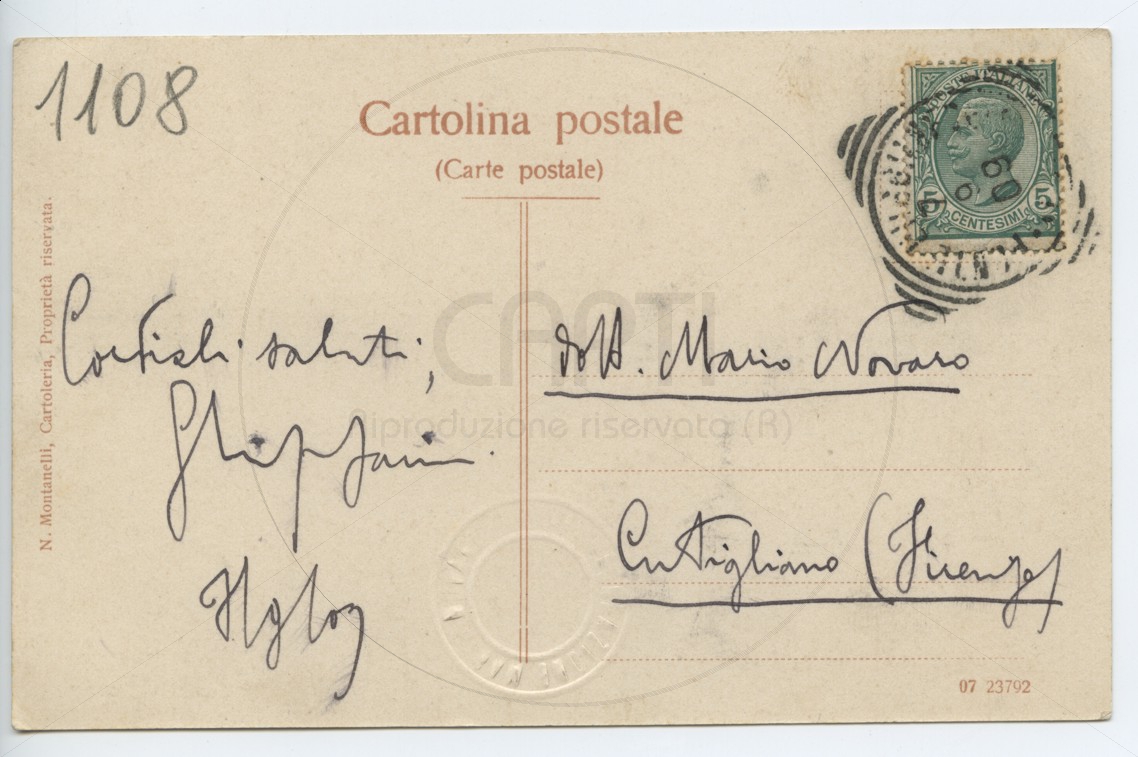 1108
Cartolina postale
(Carte postale)
POSTE ITALIANE
5 5
CENTESIMI
09
N. Montanelli, Cartoleria, Proprietà riservata.
Cordiali saluti,
dott. Mario Novaro
Cutigliano (Firenze)
CARTI
Riproduzione riservata (R)
07 23792